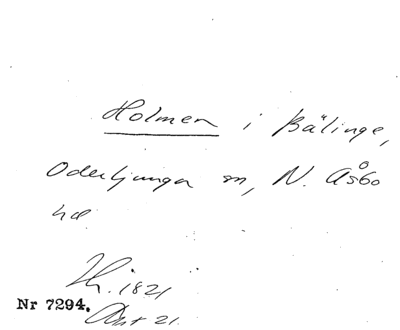 Holmen i Bälinge,
Oderljunga sn, N. Åsbo
hd
1821
Nr 7294.
21.